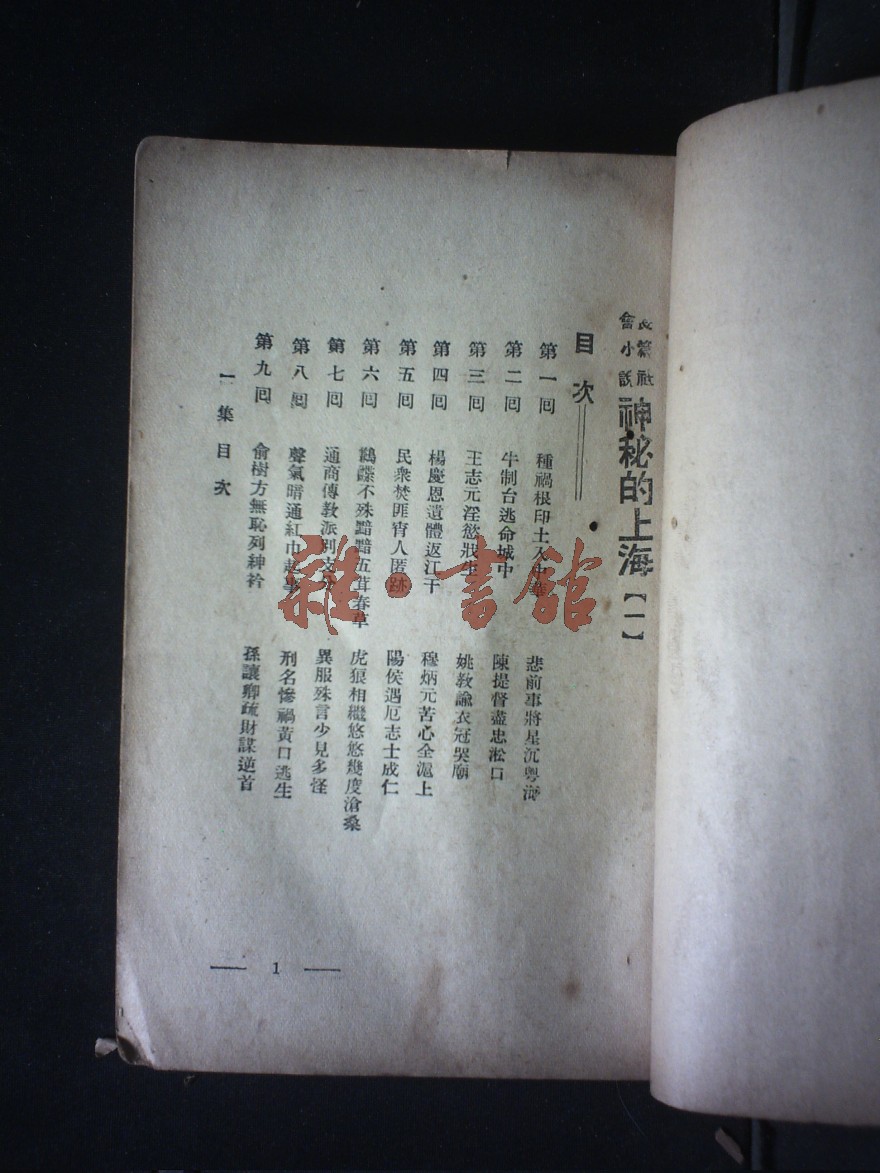 長篇社會小說 神秘的上海【一】
目次
第一回 種禍根印土入中華 悲前事將星沉粵海
第二回 牛制台逃命城中 陳提督盡忠淞口
第三回 王志元淫慾戕生 姚教諭衣冠哭廟
第四回 楊慶恩遺體返江干 穆炳元苦心全滬上
第五回 民衆焚匪宵人匿跡 陽侯遇厄志士成仁
第六回 鷸蠓不殊黯黯五茸春草 虎狼相繼悠悠幾度滄桑
第七回 通商傳教派別支分 異服殊言少見多怪
第八回 聲氣暗通紅巾起事 刑名慘禍黃口逃生
第九回 俞樹方無恥列紳衿 孫讓卿疏財謀逆首
一集目次
1
雜·書館